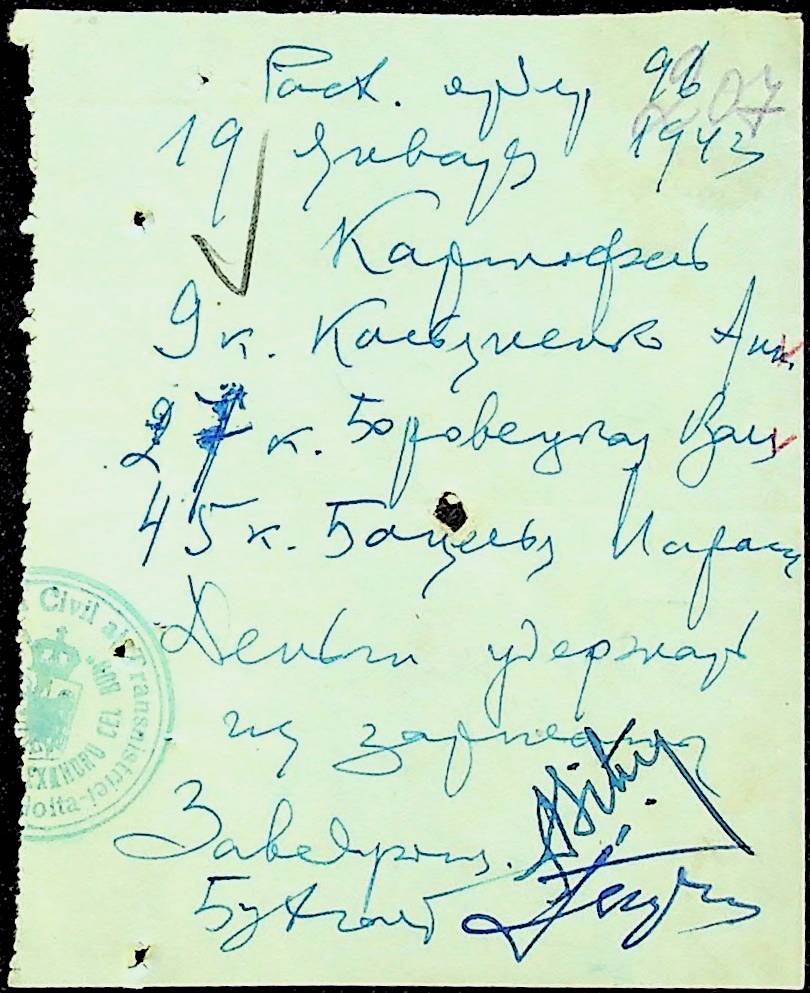 Расх. ордер 96
207
19 января 1943
Картофель
9 к. Кользиенко Анн.
27 к. Боровецкая Вал
45 к. Бацель Параск
Деньги удержать
из зарплаты
Заведующ.
Бухгалт
Civil al Transnistriei
"ION
ALEXANDRU CEL